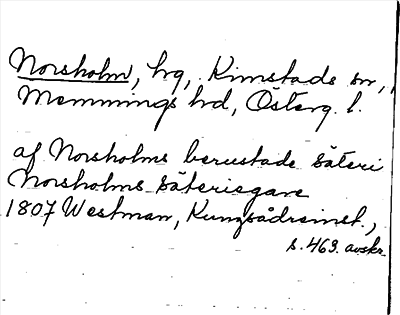 Norsholm, hg, Kimstads sn,
Memmings hd, Österg. l.
af Norsholms berustade säteri
Norsholms säteriegare
1807 Westman, Kungsådreinst.,
s. 469. avskr.